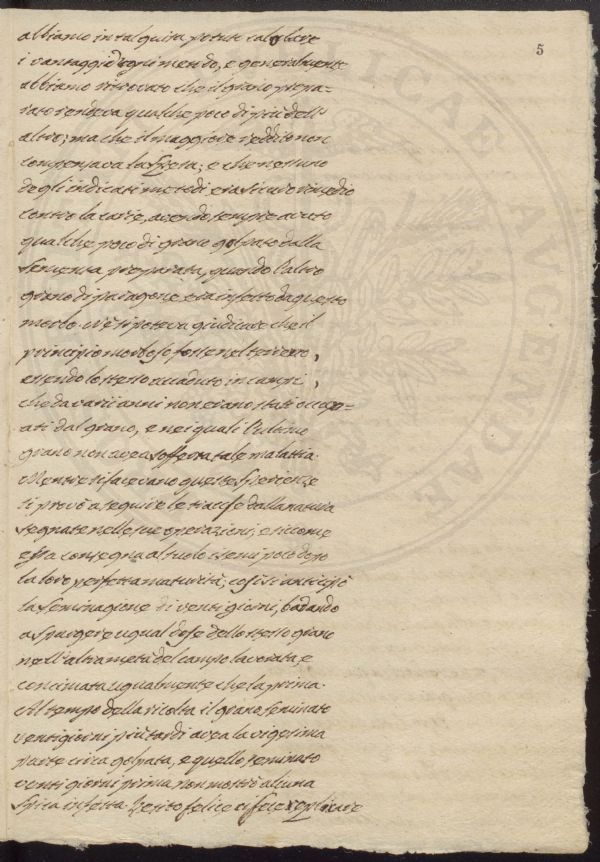 5
abbiamo in tal guisa potuto calcolare
i vantaggi d'ogni mondo, e generalmente
abbiamo ritrovato che il grano prepa-
rato rendeva qualche poco di più dell'
altro; ma che il maggiore reddito non
compensava la spesa; e che nessuno
degli indicati metodi era sicuro rimedio
contro la carie, avendo sempre avuto
qualche poco di grano golpato dalla
sementa preparata, quando l'altro
grano di paragone era infetto da questo
morbo. Nè si poteva giudicare che il
principio morboso fosse nel terreno,
essendo lo stesso accaduto in campi,
che da varii anni non erano stati occup-
ati dal grano, e nei quali l'ultimo
grano non avea sofferta tale malattia.
Mentre si facevano queste sperienze
si provò a seguire le traccie dalla natura
segnate nelle sue operazioni; e siccome
essa consegna al suolo i semi poco dopo
la loro perfetta maturità; così si anticipò
la seminagione di venti giorni, badando
a spargere ugual dose dello stesso grano
nell'altra metà del campo lavorata, e
concimata ugualmente che la prima.
Al tempo della ricolta il grano seminato
venti giorni più tardi avea la vigesima
parte circa golpata, e quello seminato
venti giorni prima non mostrò alcuna
spica infetta. L'esito felice ci fece replicare